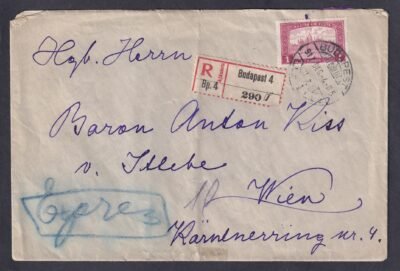 Hgb. Herrn
BUDAPEST
R
Budapest 4
Bp. 4
2907
Baron Anton Kiss
v. Ittebe
Wien
Kärntnerring nr. 4.
Expres